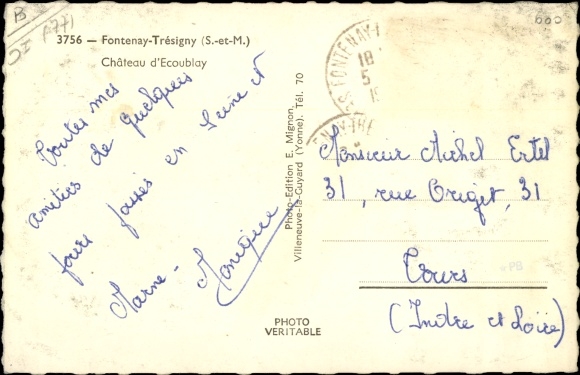 B
3756 — Fontenay-Trésigny (S.-et-M.)
Château d'Ecoublay
Toutes mes
amitiés de quelques
jours passés en Seine et
Marne -
Photo-Edition E. Mignon,
Villeneuve-la-Guyard (Yonne). Tél. 70
PHOTO
VERITABLE
FONTENAY-
18
5
Monsieur Michel Ertel
31, rue Origet, 31
Tours
(Indre et Loire)
PB